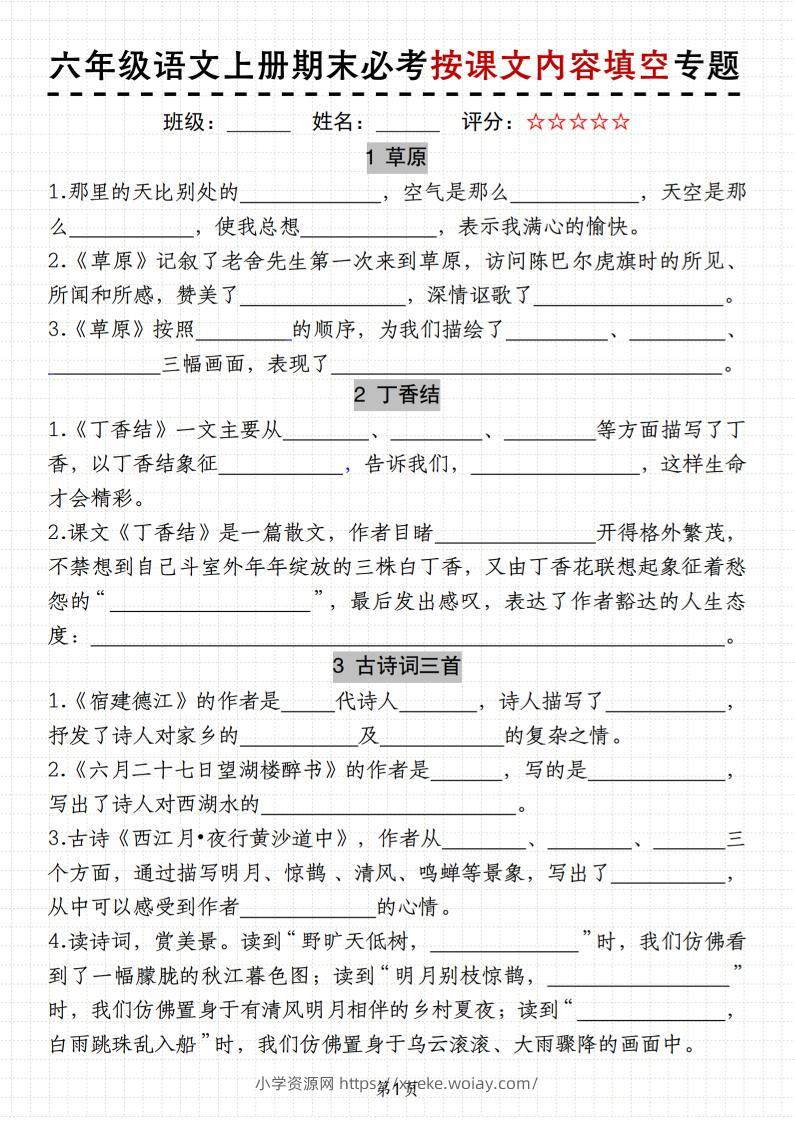 六年级语文上册期末必考按课文内容填空专题
班级：______ 姓名：______ 评分：☆☆☆☆☆
1 草原
1.那里的天比别处的____________，空气是那么____________，天空是那
么____________，使我总想____________，表示我满心的愉快。
2.《草原》记叙了老舍先生第一次来到草原，访问陈巴尔虎旗时的所见、
所闻和所感，赞美了______________，深情讴歌了________________。
3.《草原》按照________的顺序，为我们描绘了_________、________、
_________三幅画面，表现了__________________________________。
2 丁香结
1.《丁香结》一文主要从_______、________、________等方面描写了丁
香，以丁香结象征___________，告诉我们，______________，这样生命
才会精彩。
2.课文《丁香结》是一篇散文，作者目睹______________开得格外繁茂，
不禁想到自己斗室外年年绽放的三株白丁香，又由丁香花联想起象征着愁
怨的“__________________”，最后发出感叹，表达了作者豁达的人生态
度：______________________________________________________。
3 古诗词三首
1.《宿建德江》的作者是_____代诗人_______，诗人描写了__________，
抒发了诗人对家乡的__________及__________的复杂之情。
2.《六月二十七日望湖楼醉书》的作者是______，写的是____________，
写出了诗人对西湖水的______________________。
3.古诗《西江月•夜行黄沙道中》，作者从_______、_______、______三
个方面，通过描写明月、惊鹊 、清风、鸣蝉等景象，写出了__________，
从中可以感受到作者____________的心情。
4.读诗词，赏美景。读到“野旷天低树，_____________”时，我们仿佛看
到了一幅朦胧的秋江暮色图；读到“明月别枝惊鹊，________________”
时，我们仿佛置身于有清风明月相伴的乡村夏夜；读到“_____________，
白雨跳珠乱入船”时，我们仿佛置身于乌云滚滚、大雨骤降的画面中。
小学资源网 https://x eke.woiay.com/
第1页